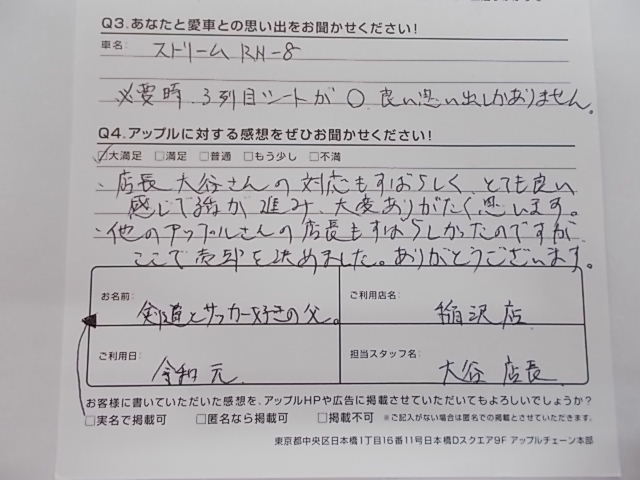 Q3.あなたと愛車との思い出をお聞かせください!
車名 ストリーム RN-8
必要時 3列目シートが○ 良い思い出しかありません。
Q4.アップルに対する感想をぜひお聞かせください!
☑大満足 □満足 □普通 □もう少し □不満
・店長 大谷さんの対応もすばらしく、とても良い
感じで話が進み、大変ありがたく思います。
・他のアップルさんの店長もすばらしかったのですが
ここで売却を決めました。ありがとうございます。
お名前: 剣道とサッカー好きの父。
ご利用店名: 稲沢店
ご利用日: 令和元
担当スタッフ名: 大谷 店長
お客様に書いていただいた感想を、アップルHPや広告に掲載させていただいてもよろしいでしょうか?
□実名で掲載可 □匿名なら掲載可 □掲載不可 ※ご記入がない場合は匿名での掲載とさせていただきます。
東京都中央区日本橋1丁目16番11号日本橋Dスクエア9F アップルチェーン本部